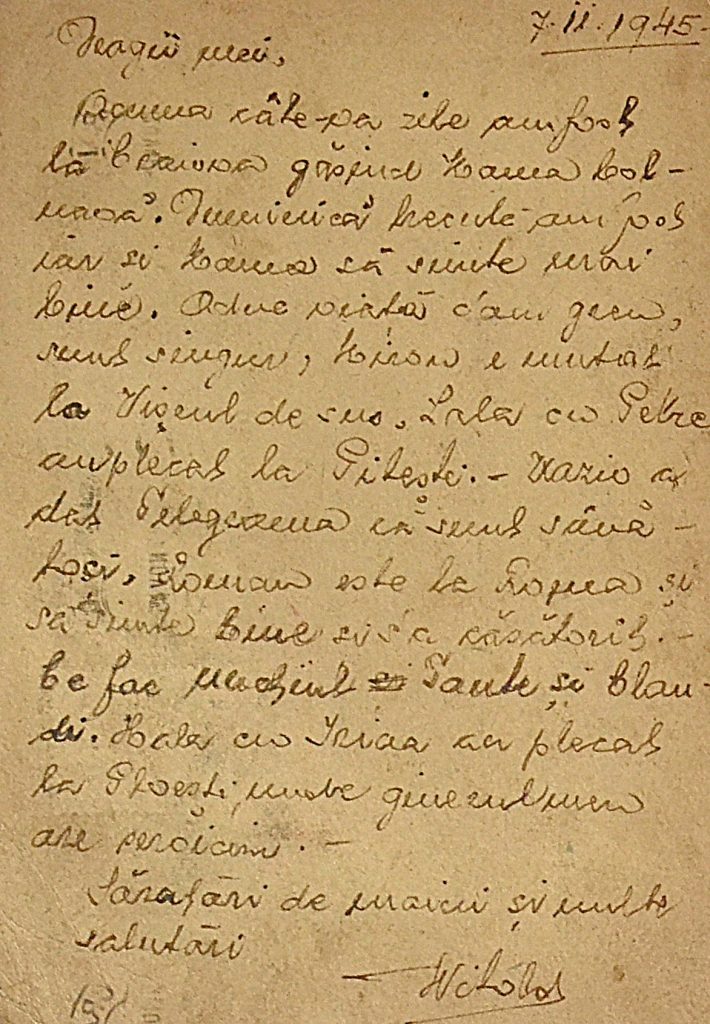 7.II.1945.
Dragii mei,
Acuma câte-va zile am fost
la Craiova găsind Mama bol-
navă. Duminică trecută am fost
iar și Mama să simte mai
bine. Aduc viață cam grea,
sunt singur, Miron e mutat
la Vișeul de sus. Lala cu Petre
au plecat la Pitești. - Kazio a
dat Telegrama că sunt sănă-
toși. Roman este la Roma și
să simte bine și s'a căsătorit. -
Ce fac Unchiul Tante și Clau-
di. Mala cu au plecat
la Ploești, unde ginerul meu
are serviciu. -
Sărutări de mainii și multe
salutări
Witold